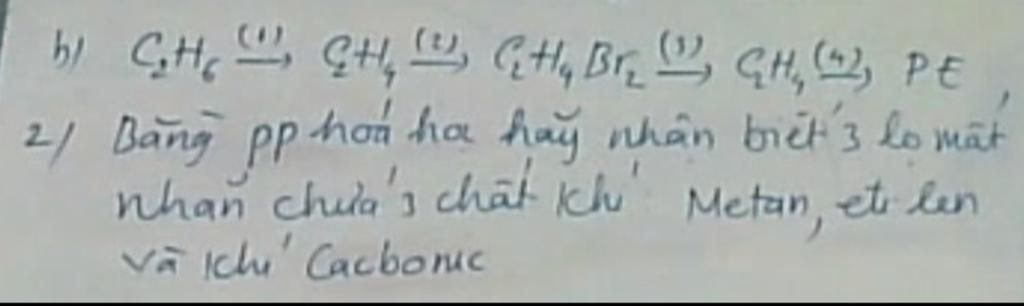 b/ C₂H₆ (1)→ C₂H₄ (2)→ C₂H₄Br₂ (3)→ C₂H₄ (4)→ PE
2/ Bằng pp hoá học hãy nhận biết 3 lọ mất
nhãn chứa 3 chất khí Metan, etilen
và khí Cacbonic